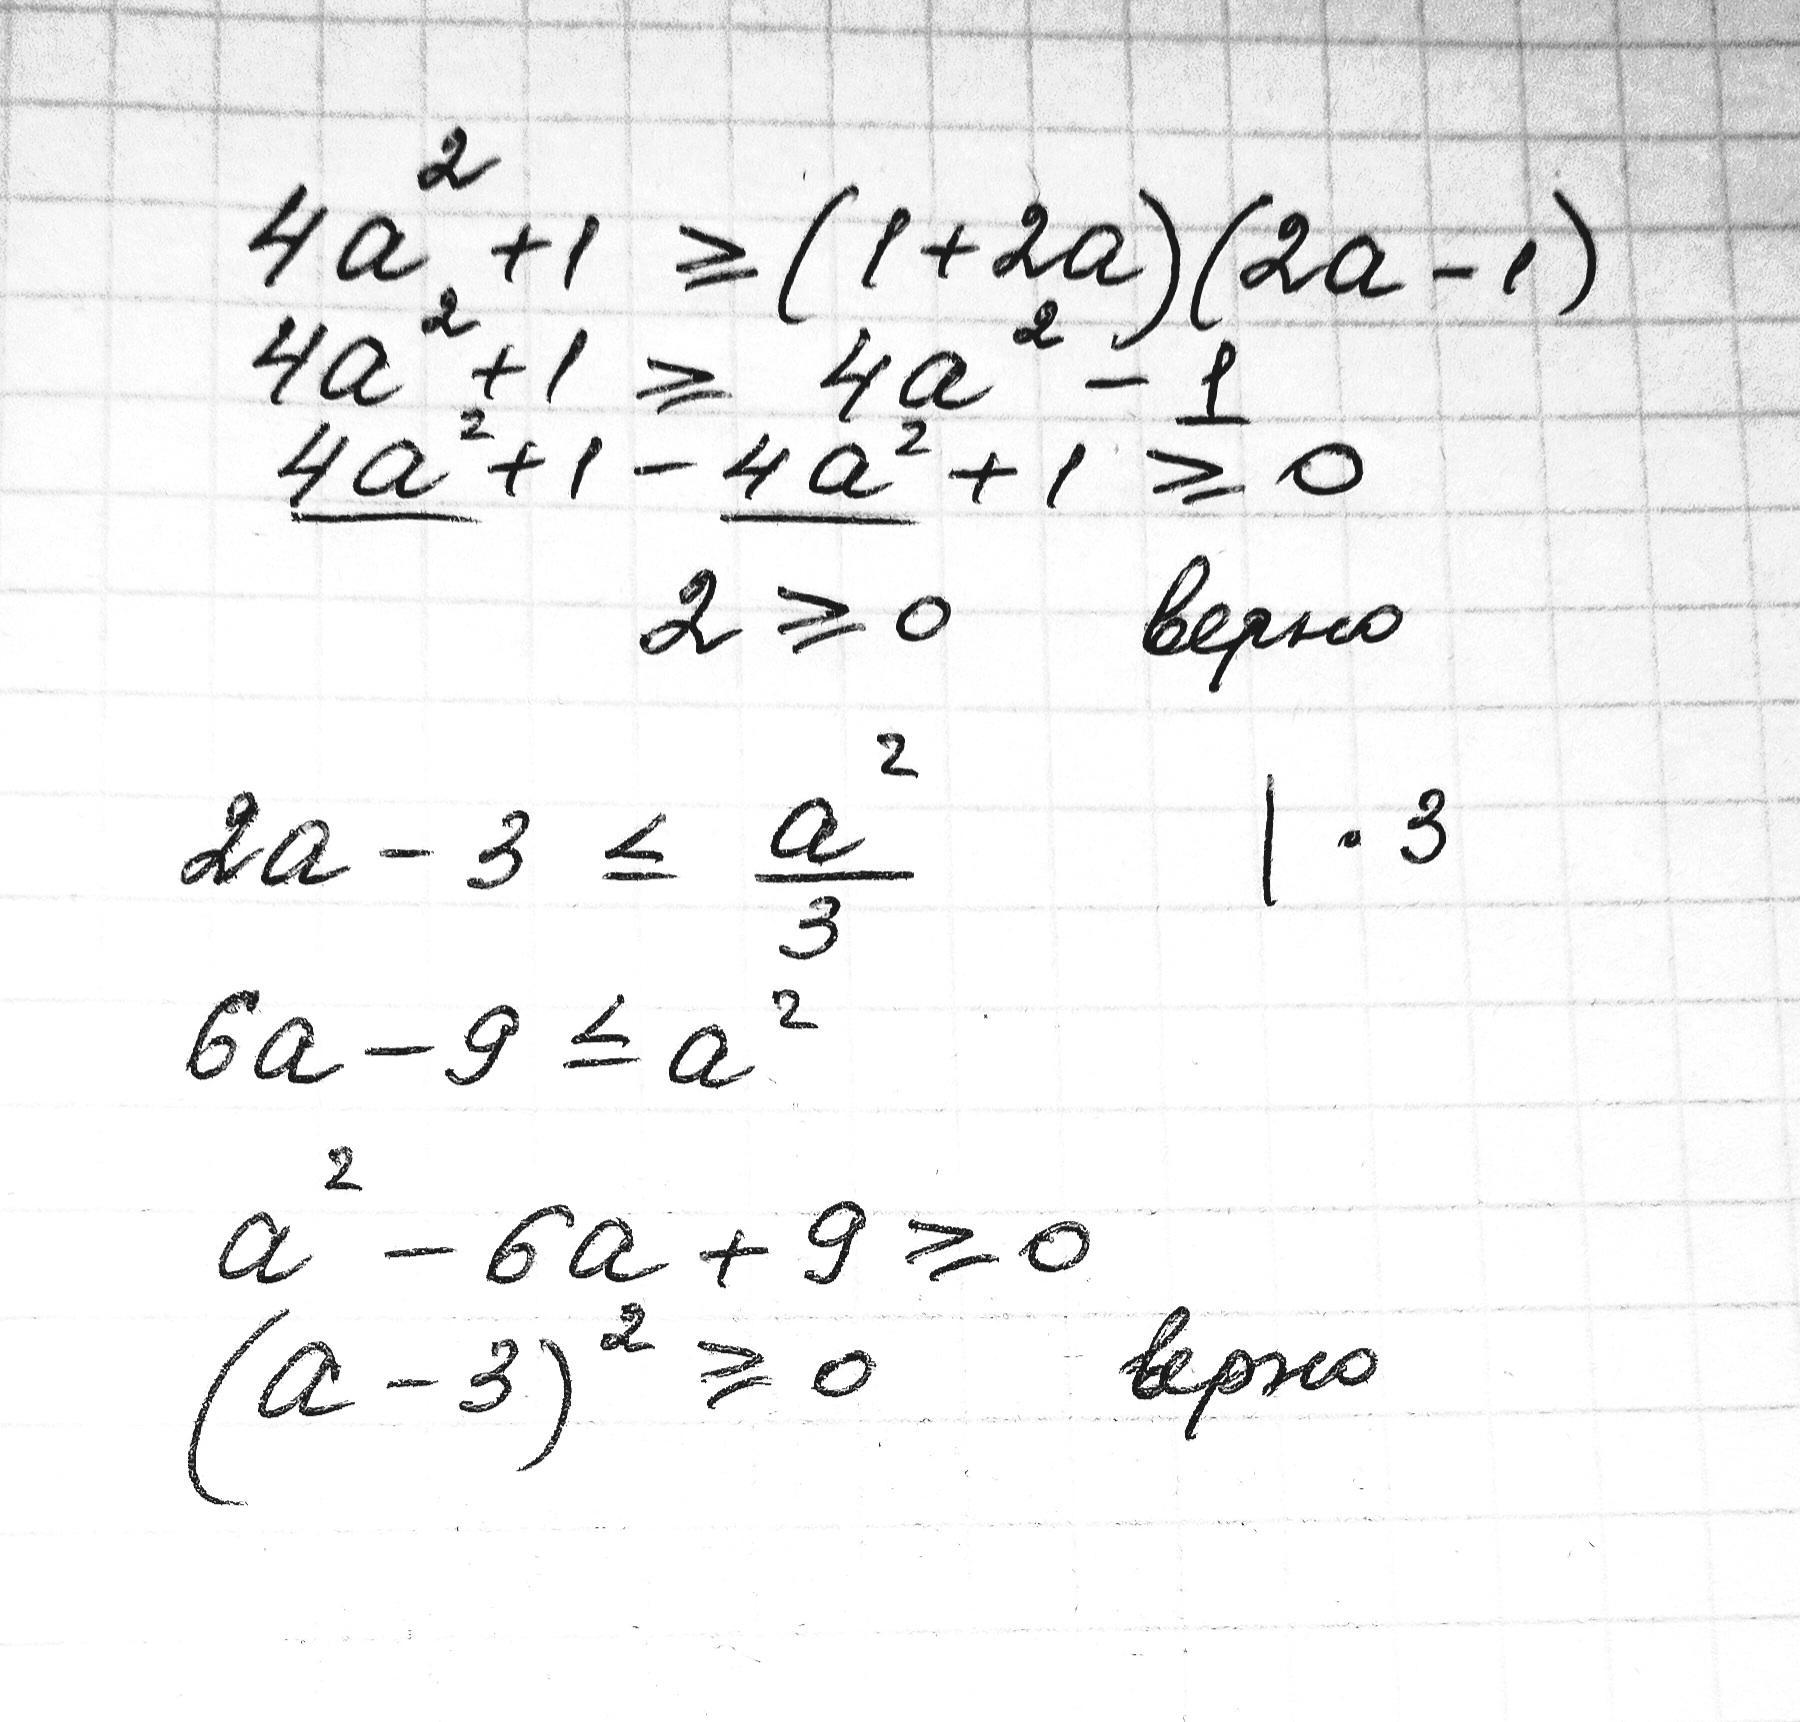 4a² + 1 ≥ (1 + 2a)(2a - 1)
4a² + 1 ≥ 4a² - 1
4a² + 1 - 4a² + 1 ≥ 0
2 ≥ 0 верно
2a - 3 ≤ a²/3 | · 3
6a - 9 ≤ a²
a² - 6a + 9 ≥ 0
(a - 3)² ≥ 0 верно